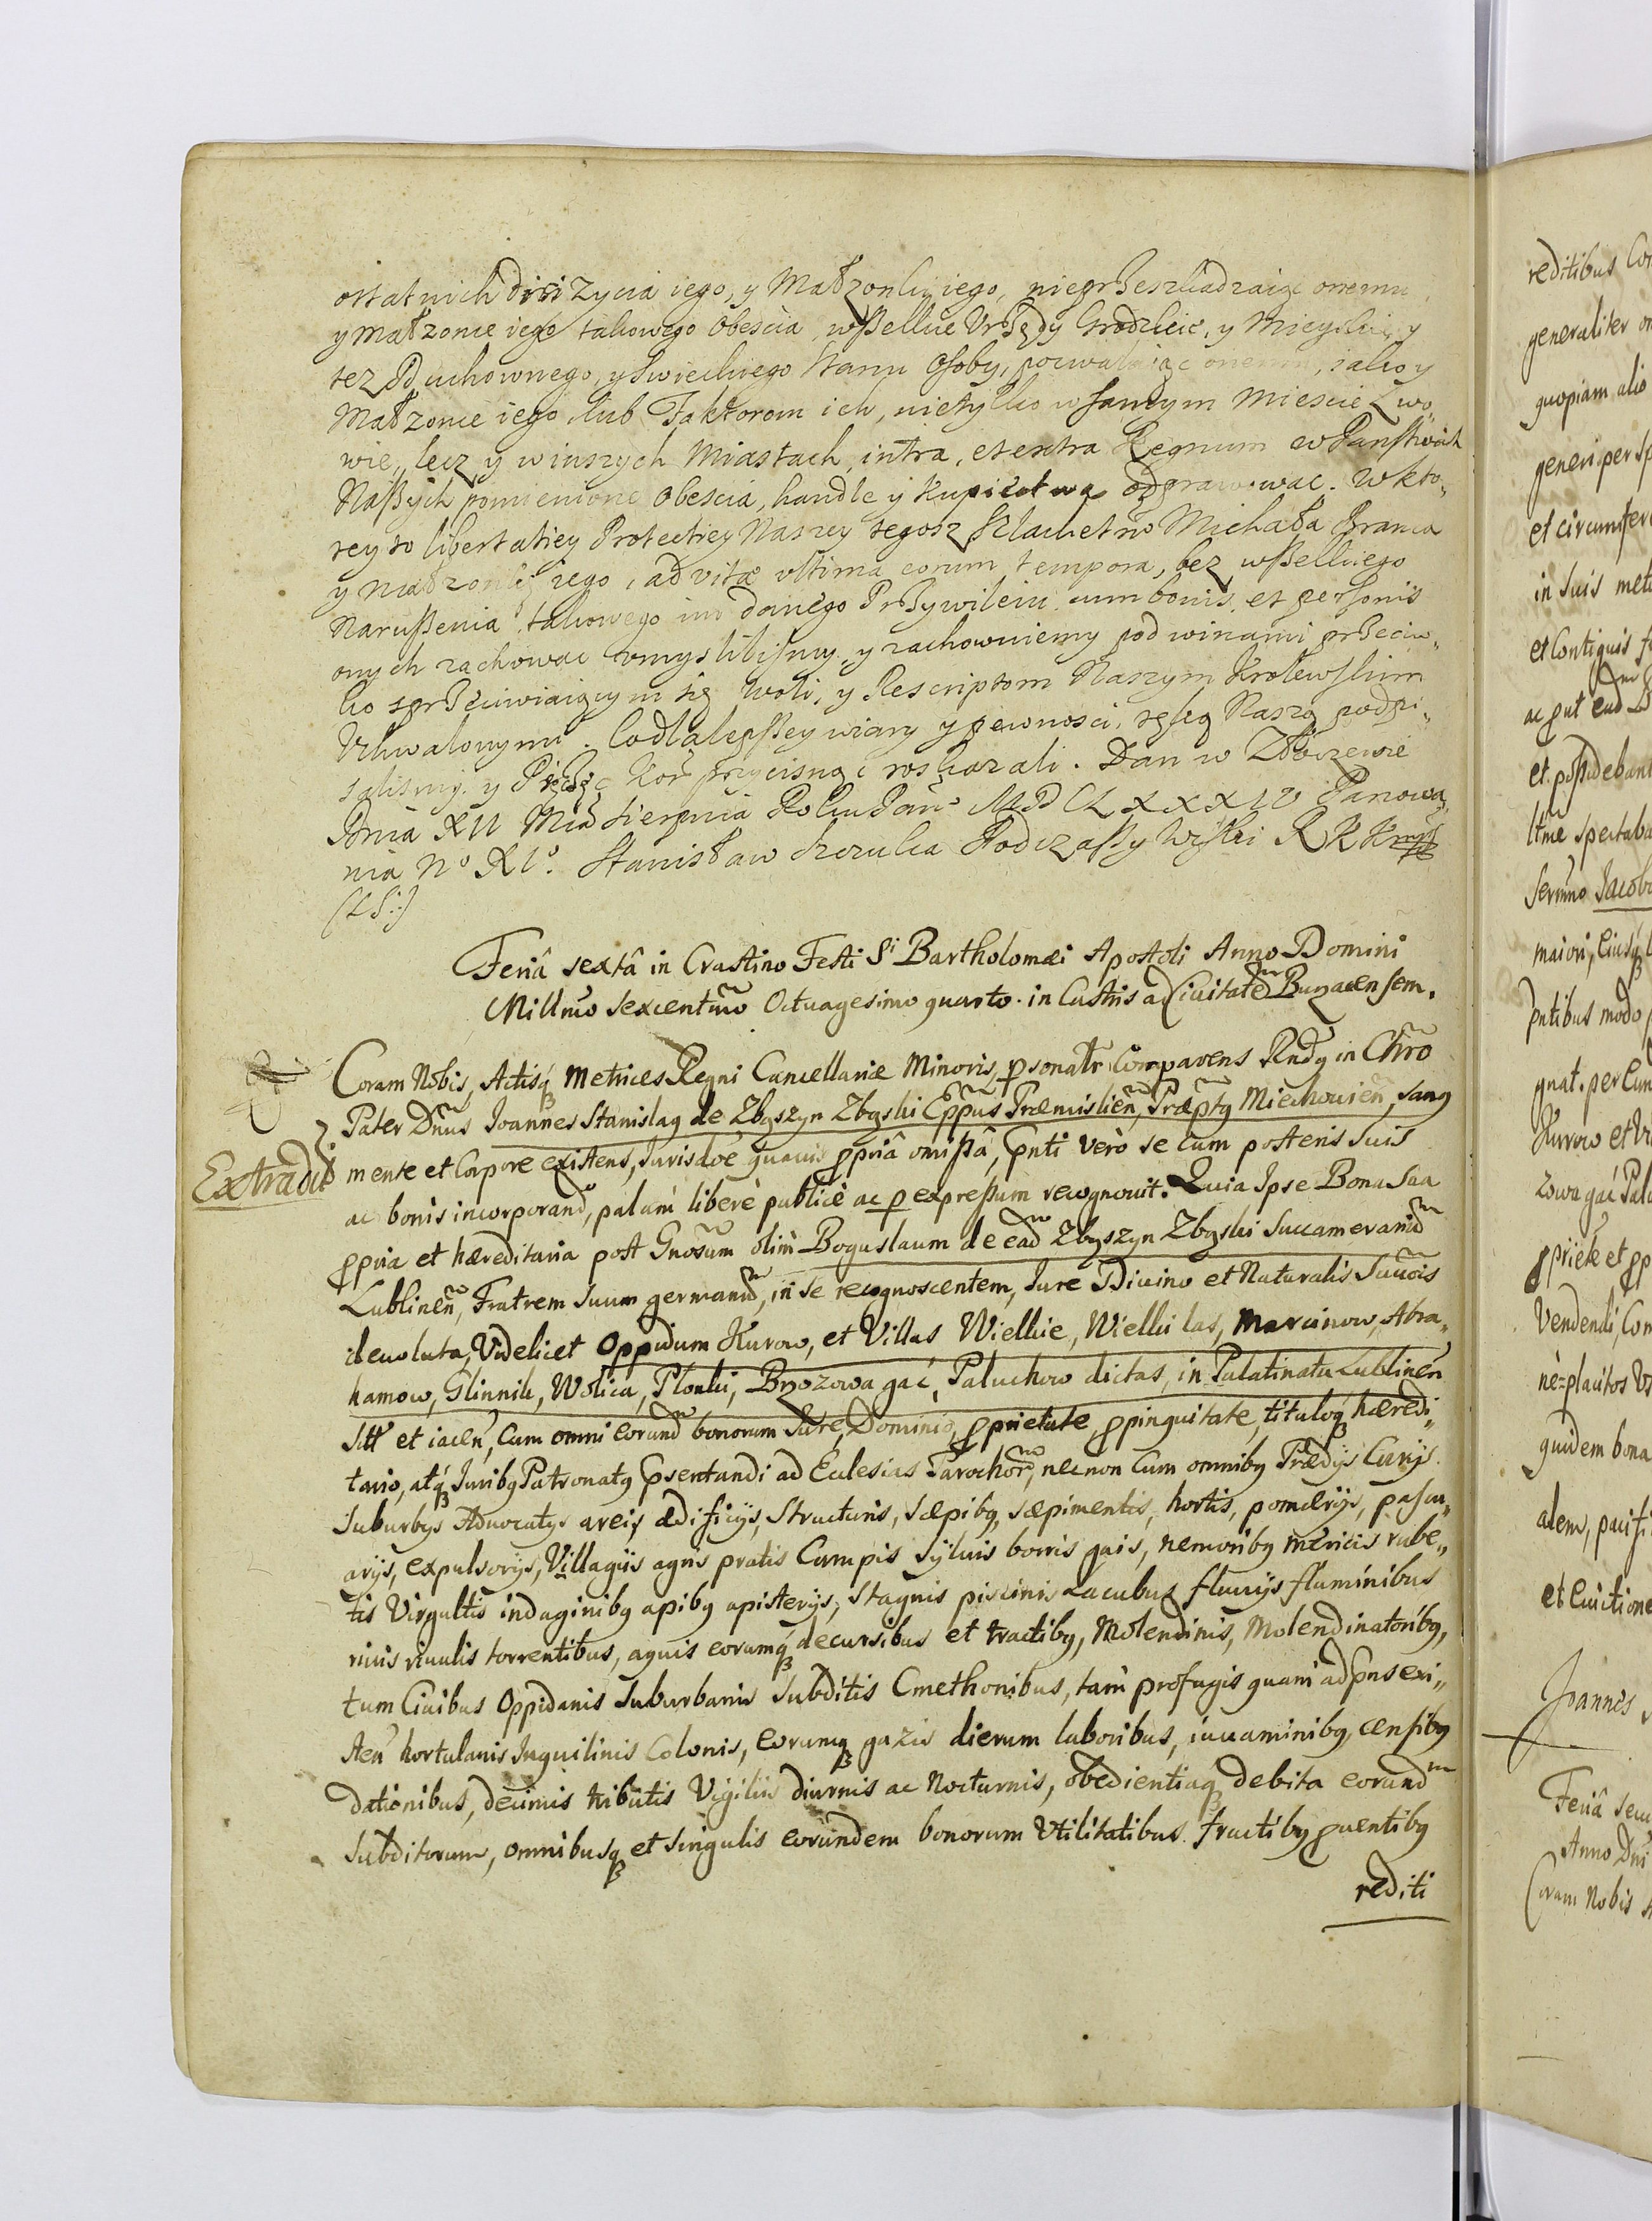 ostatnich dni Zycia iego, y Małzonki iego, nieprzeszkadzaiąc onemu
y małzonce iego takowego Obescia, wszelkie Vrzędy Grodzkie, y Mieyskie, y
tez Duchownego, y Swieckiego Stanu Osoby, pozwalaiąc onemu, iako y
Małzonce iego, lub Faktorom ich, nietylko w samym Miescie Lwo„
wie, lecz y w inszych Miastach, intra, et extra Regnum w Panstwach
Naszych pomienione Obescia, handle y kupiectwa odprawowac. W kto„
rey to libertatiey Protectiey Naszey tegosz Szlachetno Michała
y małzonkę iego, ad vitæ ultima eorum tempora, bez wszelkiego
Naruszenia takowego im danego Przywileiu cum bonis, et personis
onych zachowac umyslilismy, y zachowuiemy pod winami przeciw„
ko sprzeciwiaiącym się Woli, y Rescriptom Naszym Krolewskim
Uchwalonymi. Co dla lepszey wiary y pewnosci, ręką Naszą podpi„
salismy, y Pieczęc Kor przycisnąc roskazali. Dan w
Dnia XII Mca Sierpnia Roku Pan MDCLXXXIV Panowa„
nia Nº XIº. Stanisław Szczuka Podczaszy Wiski R K
(LS:)
Feriâ sextâ in Crastino Festi Sⁱ Bartholomæi Apostoli Anno Domini
Millmo Sexcentmo Octuagesimo quarto. in Castris ad Ciuitatem Buzacensem.
Coram Nobis, Actisq́ Metrices Regni Cancellariæ Minoris, psonalr Comparens Rndq in Chro
Pater Dnus Joannes Stanislaq de Zbąszyn Zbąski Eppus Præmislien, Præptq Miechouien, Sanq
Extradit
mente et Corpore existens, Jurisdoe quauis ppriâ omissâ, pnti verò se cum posteris suis
ac bonis incorporand, palam liberè publicè ac p expressum recognouit. Quia Ipse Bona Sua
ppria et hæreditaria post Gnosum olim Boguslaum de ead Zbąszyn Zbąski Succamerarium
Lublinen, Fratrem Suum germanum, in se recognoscentem, Jure Diuino et Naturalis Succois
deuoluta, Videlicet Oppidum Kurow, et Villas Wielkie, Wielki las, Marcinow, Abra„
hamow, Glinnik, Wolica, Płonki, Brzozowa gać, Paluchow dictas, in Palatinatu Lublinen
Sitt et iacen, Cum omni eorund bonorum Jure, Dominio, pprietate, ppinquitate, tituloq́ hæredi„
tario, atq́ Juribq Patronatq psentandi ad Ecclesias Parochor, necnon Cum omnibq Prædijs Curijs
Suburbijs Aduocatijs areis ædificijs, Structuris, sæpibq, sæpimentis, hortis, pomærijs, pascu„
arijs, expulsorijs, Villagijs agris pratis Campis Syluis borris gais, nemoribq mericis rube„
tis Virgultis indaginibq apibq apisterijs, Stagnis piscinis Lacubus fluuijs fluminibus
riuis riuulis torrentibus, aquis eorumq́ decursibus et tractibq, Molendinis, Molendinatoribq,
tum Ciuibus Oppidanis Suburbanis Subditis Cmethonibus, tam profugis quam ad pns exi„
sten hortulanis Inquilinis Colonis, eorumq́ gazis dierum laboribus, iuuaminibq, censibq
dationibus, decimis tributis Vigiliis diurnis ac Nocturnis, obedientiaq́ debita eorund
Subditorum, omnibusq́ et Singulis eorundem bonorum Utilitatibus fructibq puentibq
rediti
reditibus
generaliter
quopiam alio
generi per
et circumfer
in suis
et Contiguis
et possidebant
spectaba
maiori,
pntibus modo
Kurow et
pprietè et
Vendendi,
quidem bona
et Euictione
Joannes
Feriâ
Anno Dni
Coram Nobis